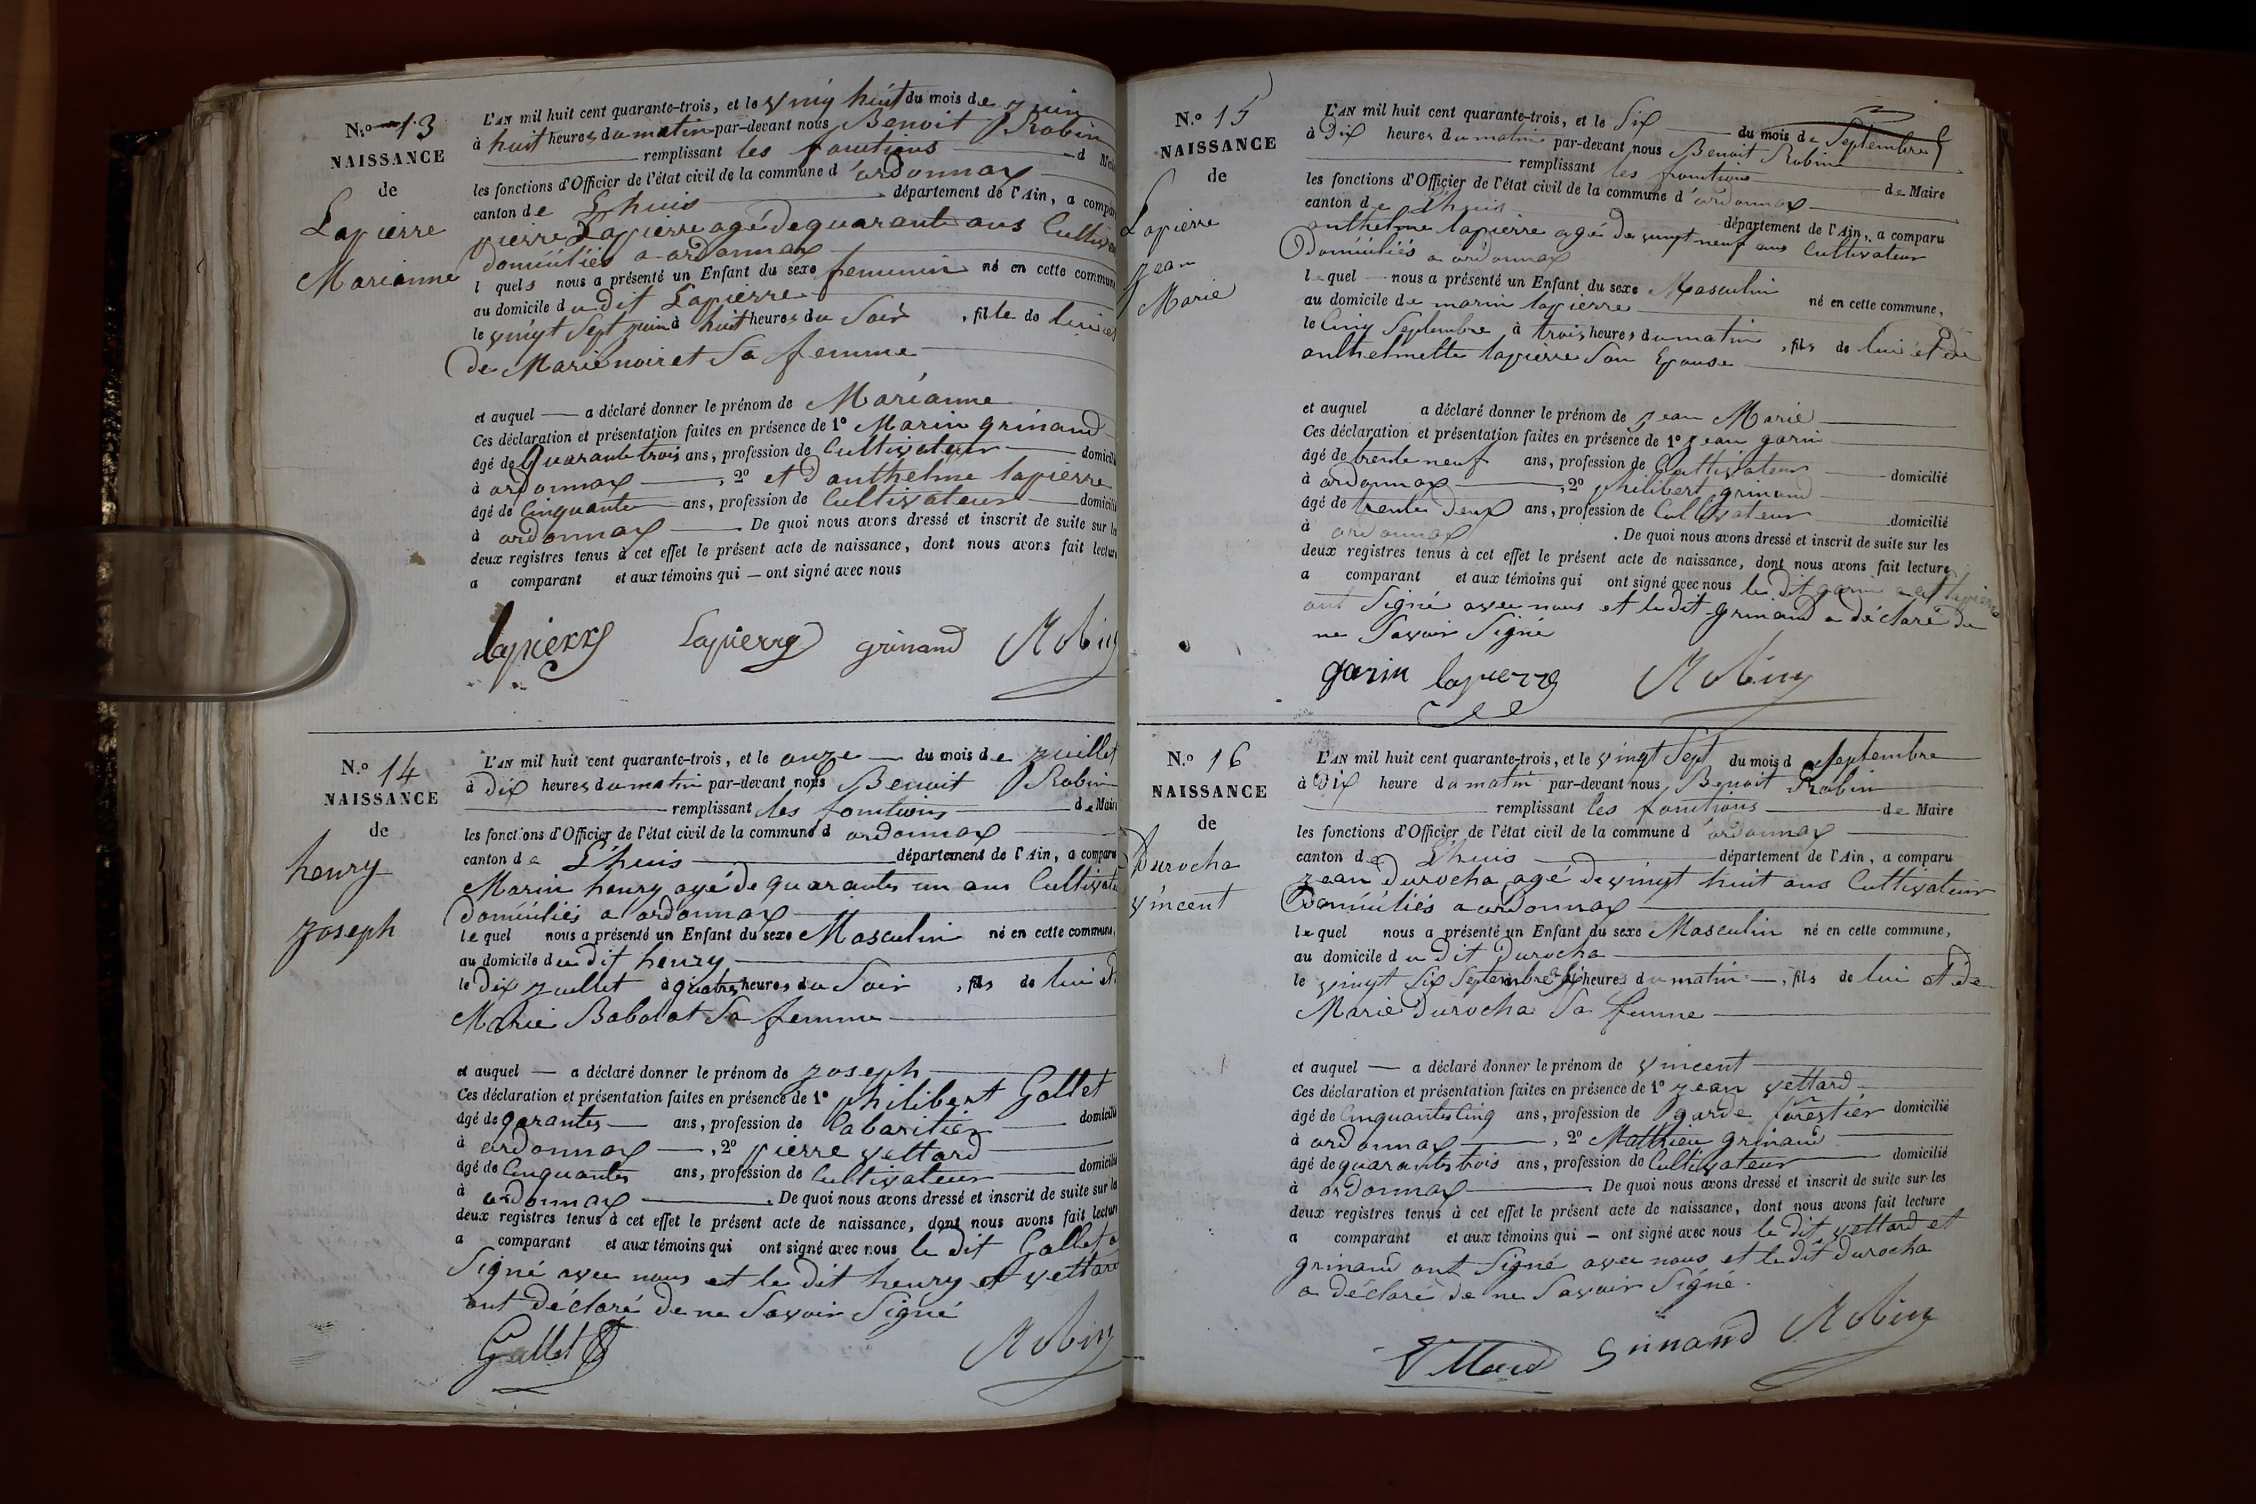 N.o 13
NAISSANCE
de
Lapierre
Marianne
L'AN mil huit cent quarante-trois, et le vingt huit du mois de juin
à huit heures du matin par-devant nous Benoit Robin
remplissant les fonctions d
les fonctions d'Officier de l'état civil de la commune d'ordonnax
canton de Lhuis département de l'Ain, a comparu
pierre Lapierre agé de quarante ans Cultivateur
domiciliés a ordonnax
l quels nous a présenté un Enfant du sexe femenin né en cette commune
au domicile du dit Lapierre
le vingt Sept juin à huit heures du Soir, fille de lui et
de Marie noiret Sa femme
et auquel — a déclaré donner le prénom de Marianne
Ces déclaration et présentation faites en présence de 1o Marin grinand
âgé de Quarante trois ans, profession de Cultivateur domicilié
à ordonnax, 2o et d'anthelme lapierre
âgé de Cinquante ans, profession de Cultivateur domicilié
à ordonnax De quoi nous avons dressé et inscrit de suite sur les
deux registres tenus à cet effet le présent acte de naissance, dont nous avons fait lecture
a comparant et aux témoins qui — ont signé avec nous
lapierre Lapierre grinand Robin
N.o 14
NAISSANCE
de
henry
joseph
L'AN mil huit cent quarante-trois, et le onze — du mois de juillet
à Dix heures du matin par-devant nous Benoit Robin
remplissant les fonctions de Maire
les fonctions d'Officier de l'état civil de la commune d ordonnax
canton de Lhuis département de l'Ain, a comparu
Marin henry agé de quarante un ans Cultivate
Domiciliés a ordonnax
le quel nous a présenté un Enfant du sexe Masculin né en cette commune,
au domicile du dit henry
le Dix juillet à quatre heures du Soir, fils de lui et
Marie Babolat Sa femme
et auquel — a déclaré donner le prénom de joseph
Ces déclaration et présentation faites en présence de 1o philibert Gallet
âgé de qarantes — ans, profession de Cabaretier — domicilié
à ordonnax —, 2o pierre vettard
âgé de Cinquantes ans, profession de Cultivateur domicilié
à ordonnax. De quoi nous avons dressé et inscrit de suite sur les
deux registres tenus à cet effet le présent acte de naissance, dont nous avons fait lecture
a comparant et aux témoins qui ont signé avec nous le dit Gallet a
Signé avec nous et le Dit henry et vettard
ont déclaré de ne Savoir Signé
Gallet Robin
N.o 15
NAISSANCE
de
Lapierre
jean
Marie
L'AN mil huit cent quarante-trois, et le Six du mois de Septembre
à Dix heures du matin par-devant nous Benoit Robin
remplissant les fonctions de Maire
les fonctions d'Officier de l'état civil de la commune d'ordonnax
canton de Lhuis département de l'Ain, a comparu
anthelme lapierre agé de vingt neuf ans Cultivateur
Domiciliés a ordonnax
le quel — nous a présenté un Enfant du sexe Masculin né en cette commune,
au domicile de marin lapierre
le Cinq Septembre à trois heures du matin, fils de lui et de
anthelmette lapierre Son Epouse
et auquel a déclaré donner le prénom de jean Marie
Ces déclaration et présentation faites en présence de 1o jean garin
âgé de trente neuf ans, profession de Cultivateur domicilié
à ordonnax, 2o philibert grinand
âgé de trente deux ans, profession de Cultivateur domicilié
à ordonnax. De quoi nous avons dressé et inscrit de suite sur les
deux registres tenus à cet effet le présent acte de naissance, dont nous avons fait lecture
a comparant et aux témoins qui ont signé avec nous le Dit garin et lapierre
ont Signé avec nous et le dit grinand a déclaré de
ne Savoir Signé
garin lapierre Robin
N.o 16
NAISSANCE
de
Durocha
vincent
L'AN mil huit cent quarante-trois, et le vingt Sept du mois d Septembre
à Dix heure du matin par-devant nous Benoit Robin
remplissant les fonctions de Maire
les fonctions d'Officier de l'état civil de la commune d'ordonnax
canton de Lhuis département de l'Ain, a comparu
jean Durocha agé de vingt huit ans Cultivateur
Domiciliés a ordonnax
le quel nous a présenté un Enfant du sexe Masculin né en cette commune,
au domicile du Dit Durocha
le vingt Six Septembre heures du matin —, fils de lui et de
Marie Durocha Sa femme
et auquel — a déclaré donner le prénom de vincent
Ces déclaration et présentation faites en présence de 1o jean vettard
âgé de Cinquantes Cinq ans, profession de garde forestier domicilié
à ordonnax, 2o Mathieu grinand
âgé de quarantes trois ans, profession de Cultivateur domicilié
à ordonnax. De quoi nous avons dressé et inscrit de suite sur les
deux registres tenus à cet effet le présent acte de naissance, dont nous avons fait lecture
a comparant et aux témoins qui — ont signé avec nous le dit vettard et
grinand ont Signé avec nous et le dit Durocha
a déclaré de ne Savoir Signé.
Vettard Grinand Robin